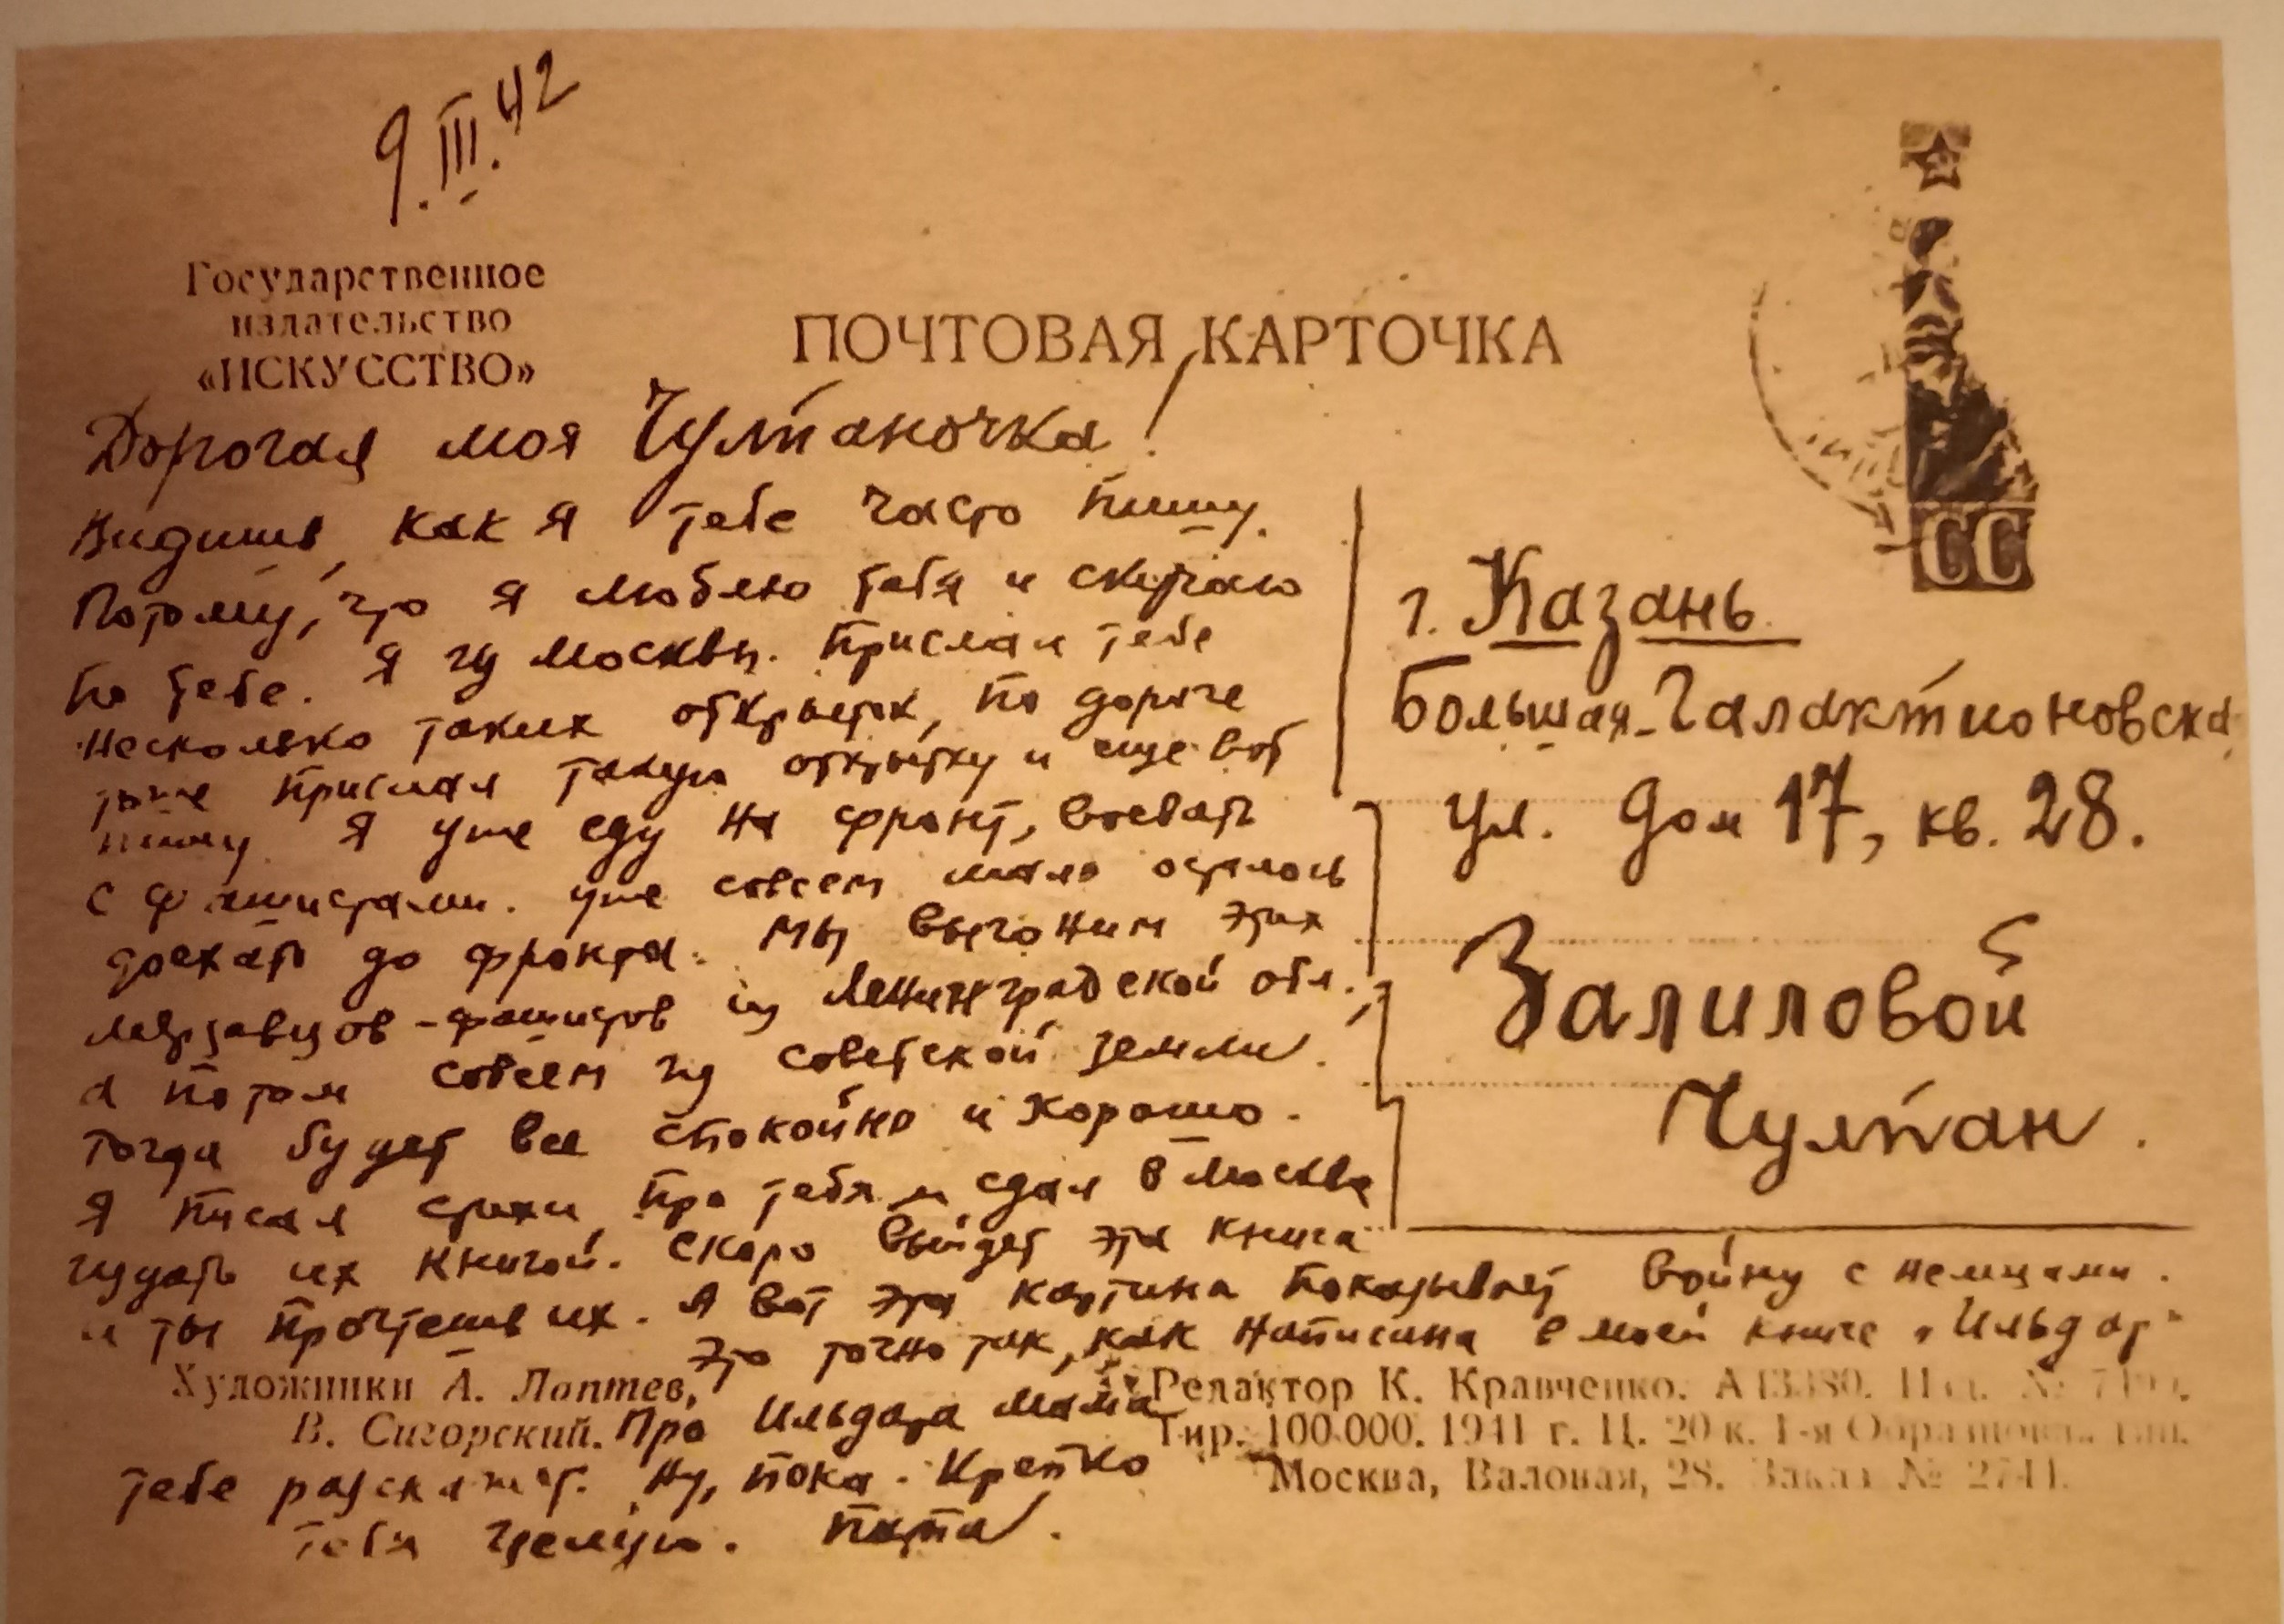 9.III.42
Государственное
издательство
«ИСКУССТВО»
ПОЧТОВАЯ КАРТОЧКА
Дорогая моя Чулпаночка!
Видишь, как я тебе часто пишу.
Потому, что я люблю тебя и скучаю
по тебе. Я из Москвы прислал тебе
несколько таких открыток, по дороге
тоже прислал такую открытку и еще вот
пишу. Я уже еду на фронт, воевать
с фашистами. Уже совсем мало осталось
доехать до фронта. Мы выгоним этих
мерзавцов-фашистов из Ленинградской обл.,
а потом совсем из советской земли.
Тогда будет все спокойно и хорошо.
Я писал стихи про тебя и сдал в Москве
издать их книгой. Скоро выйдет эта книга
и ты прочтешь их. А вот эта картина показывает войну с немцами.
Это точно так, как написана в моей книге „Ильдар"
Про Ильдара мама
тебе расскажет. Ну, пока. Крепко
тебя целую. Папа.
г. Казань
Большая-Галактионовска
ул. дом 17, кв. 28.
Залиловой
Чулпан.
СС
Художники А. Лаптев,
В. Сигорский.
Редактор К. Кравченко.
Тир. 100.000. 1941 г. Ц. 20 к. 1-я
Москва, Валовая, 28. Заказ № 2741.